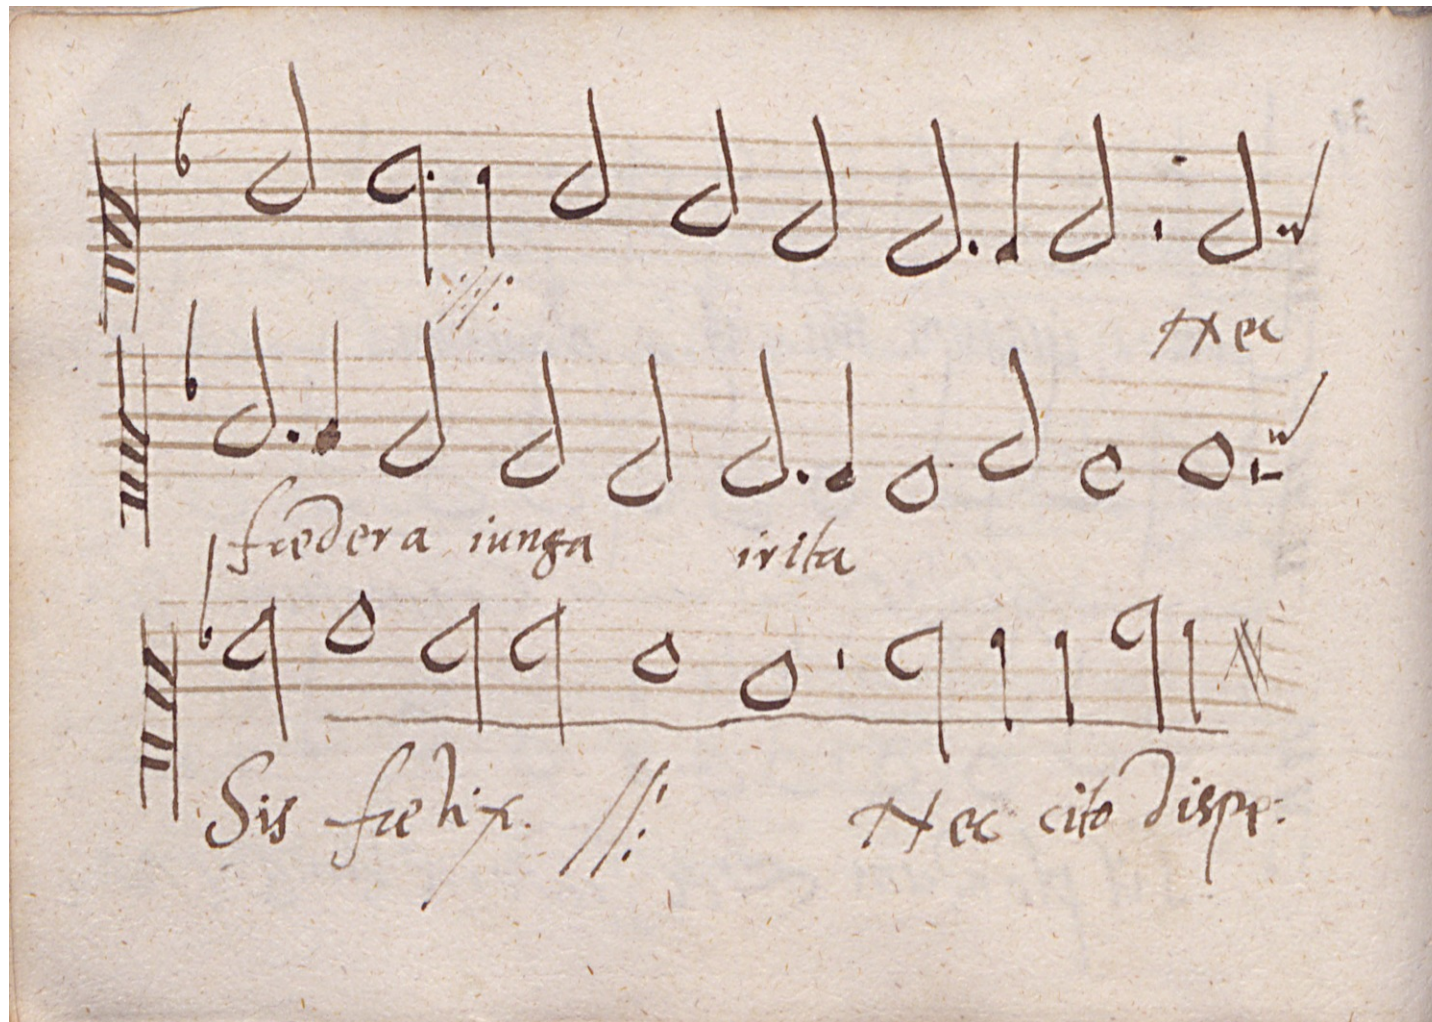 //:
Nec
fœdera iunga irita
Sis fœlix. //: Nec cito dispe: